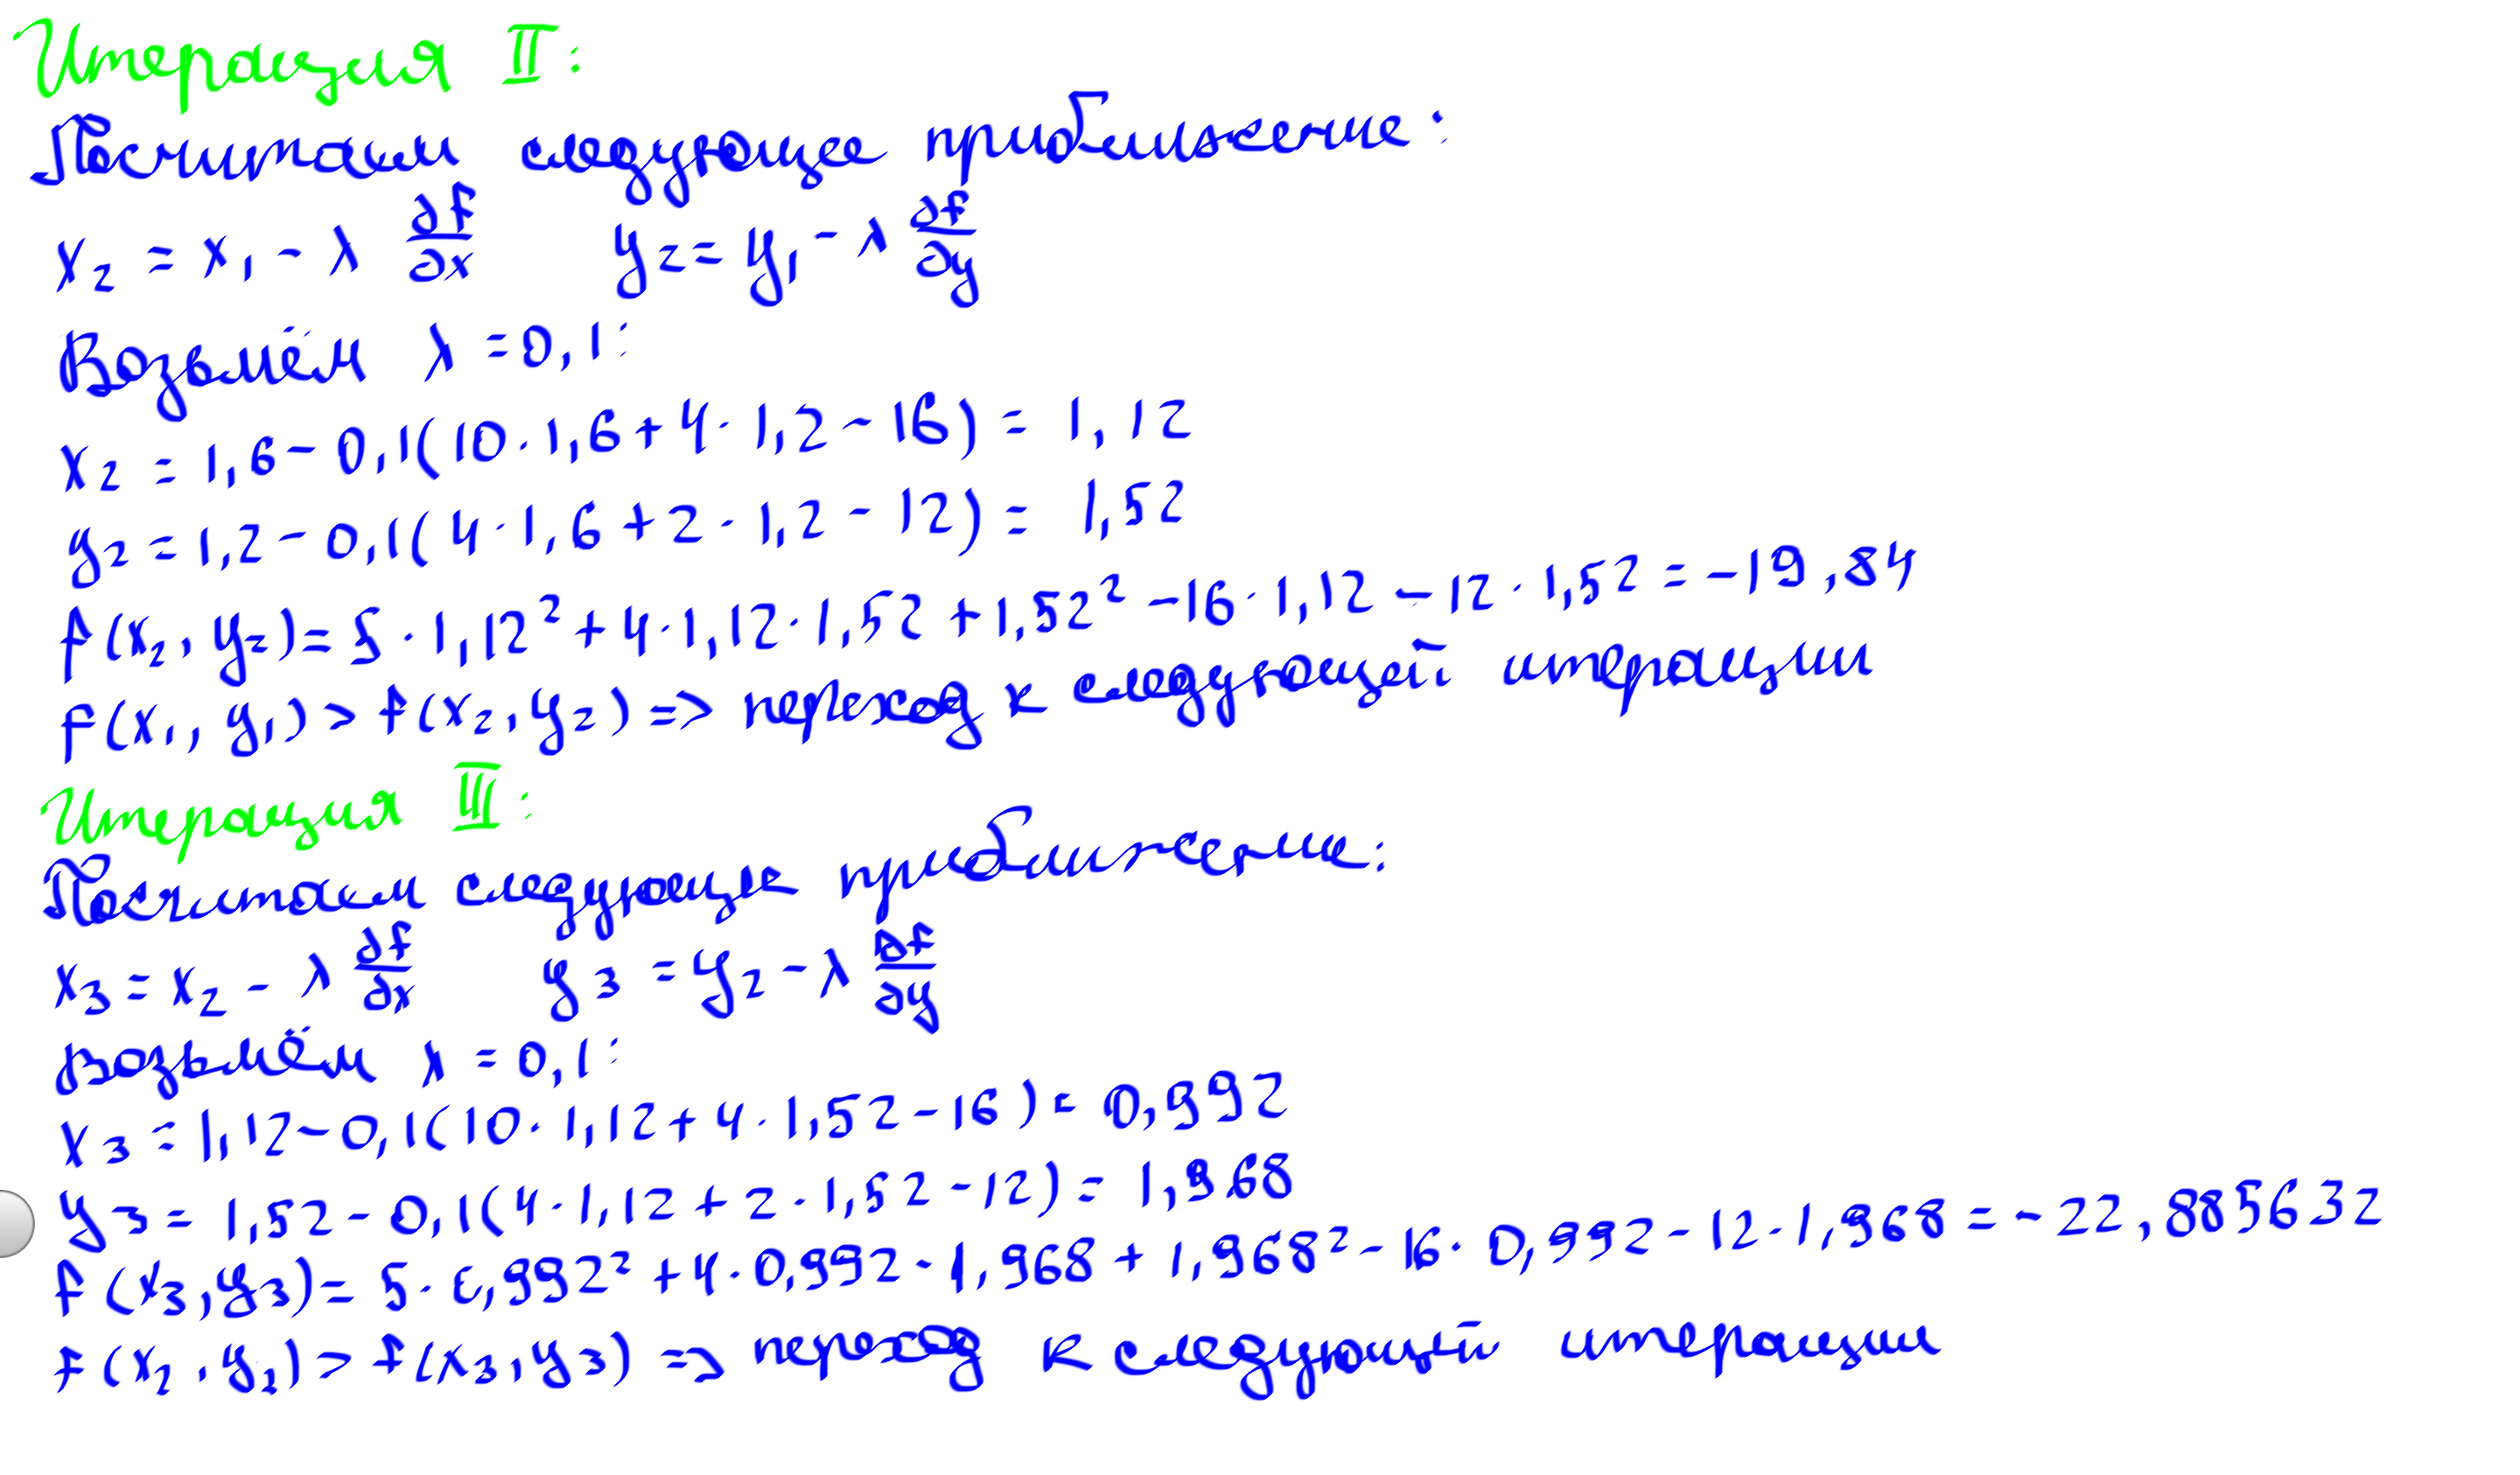 Итерация II:
Посчитаем следующее приближение:
x₂ = x₁ - λ ∂f/∂x y₂ = y₁ - λ ∂f/∂y
Возьмём λ = 0,1:
x₂ = 1,6 - 0,1(10·1,6 + 4·1,2 - 16) = 1,12
y₂ = 1,2 - 0,1(4·1,6 + 2·1,2 - 12) = 1,52
f(x₂, y₂) = 5·1,12² + 4·1,12·1,52 + 1,52² - 16·1,12 - 12·1,52 = -19,84
f(x₁, y₁) > f(x₂, y₂) => переход к следующей итерации
Итерация III:
Посчитаем следующее приближение:
x₃ = x₂ - λ ∂f/∂x y₃ = y₂ - λ ∂f/∂y
Возьмём λ = 0,1:
x₃ = 1,12 - 0,1(10·1,12 + 4·1,52 - 16) = 0,992
y₃ = 1,52 - 0,1(4·1,12 + 2·1,52 - 12) = 1,968
f(x₃, y₃) = 5·0,992² + 4·0,992·1,968 + 1,968² - 16·0,992 - 12·1,968 = -22,885632
f(x₂, y₂) > f(x₃, y₃) => переход к следующей итерации